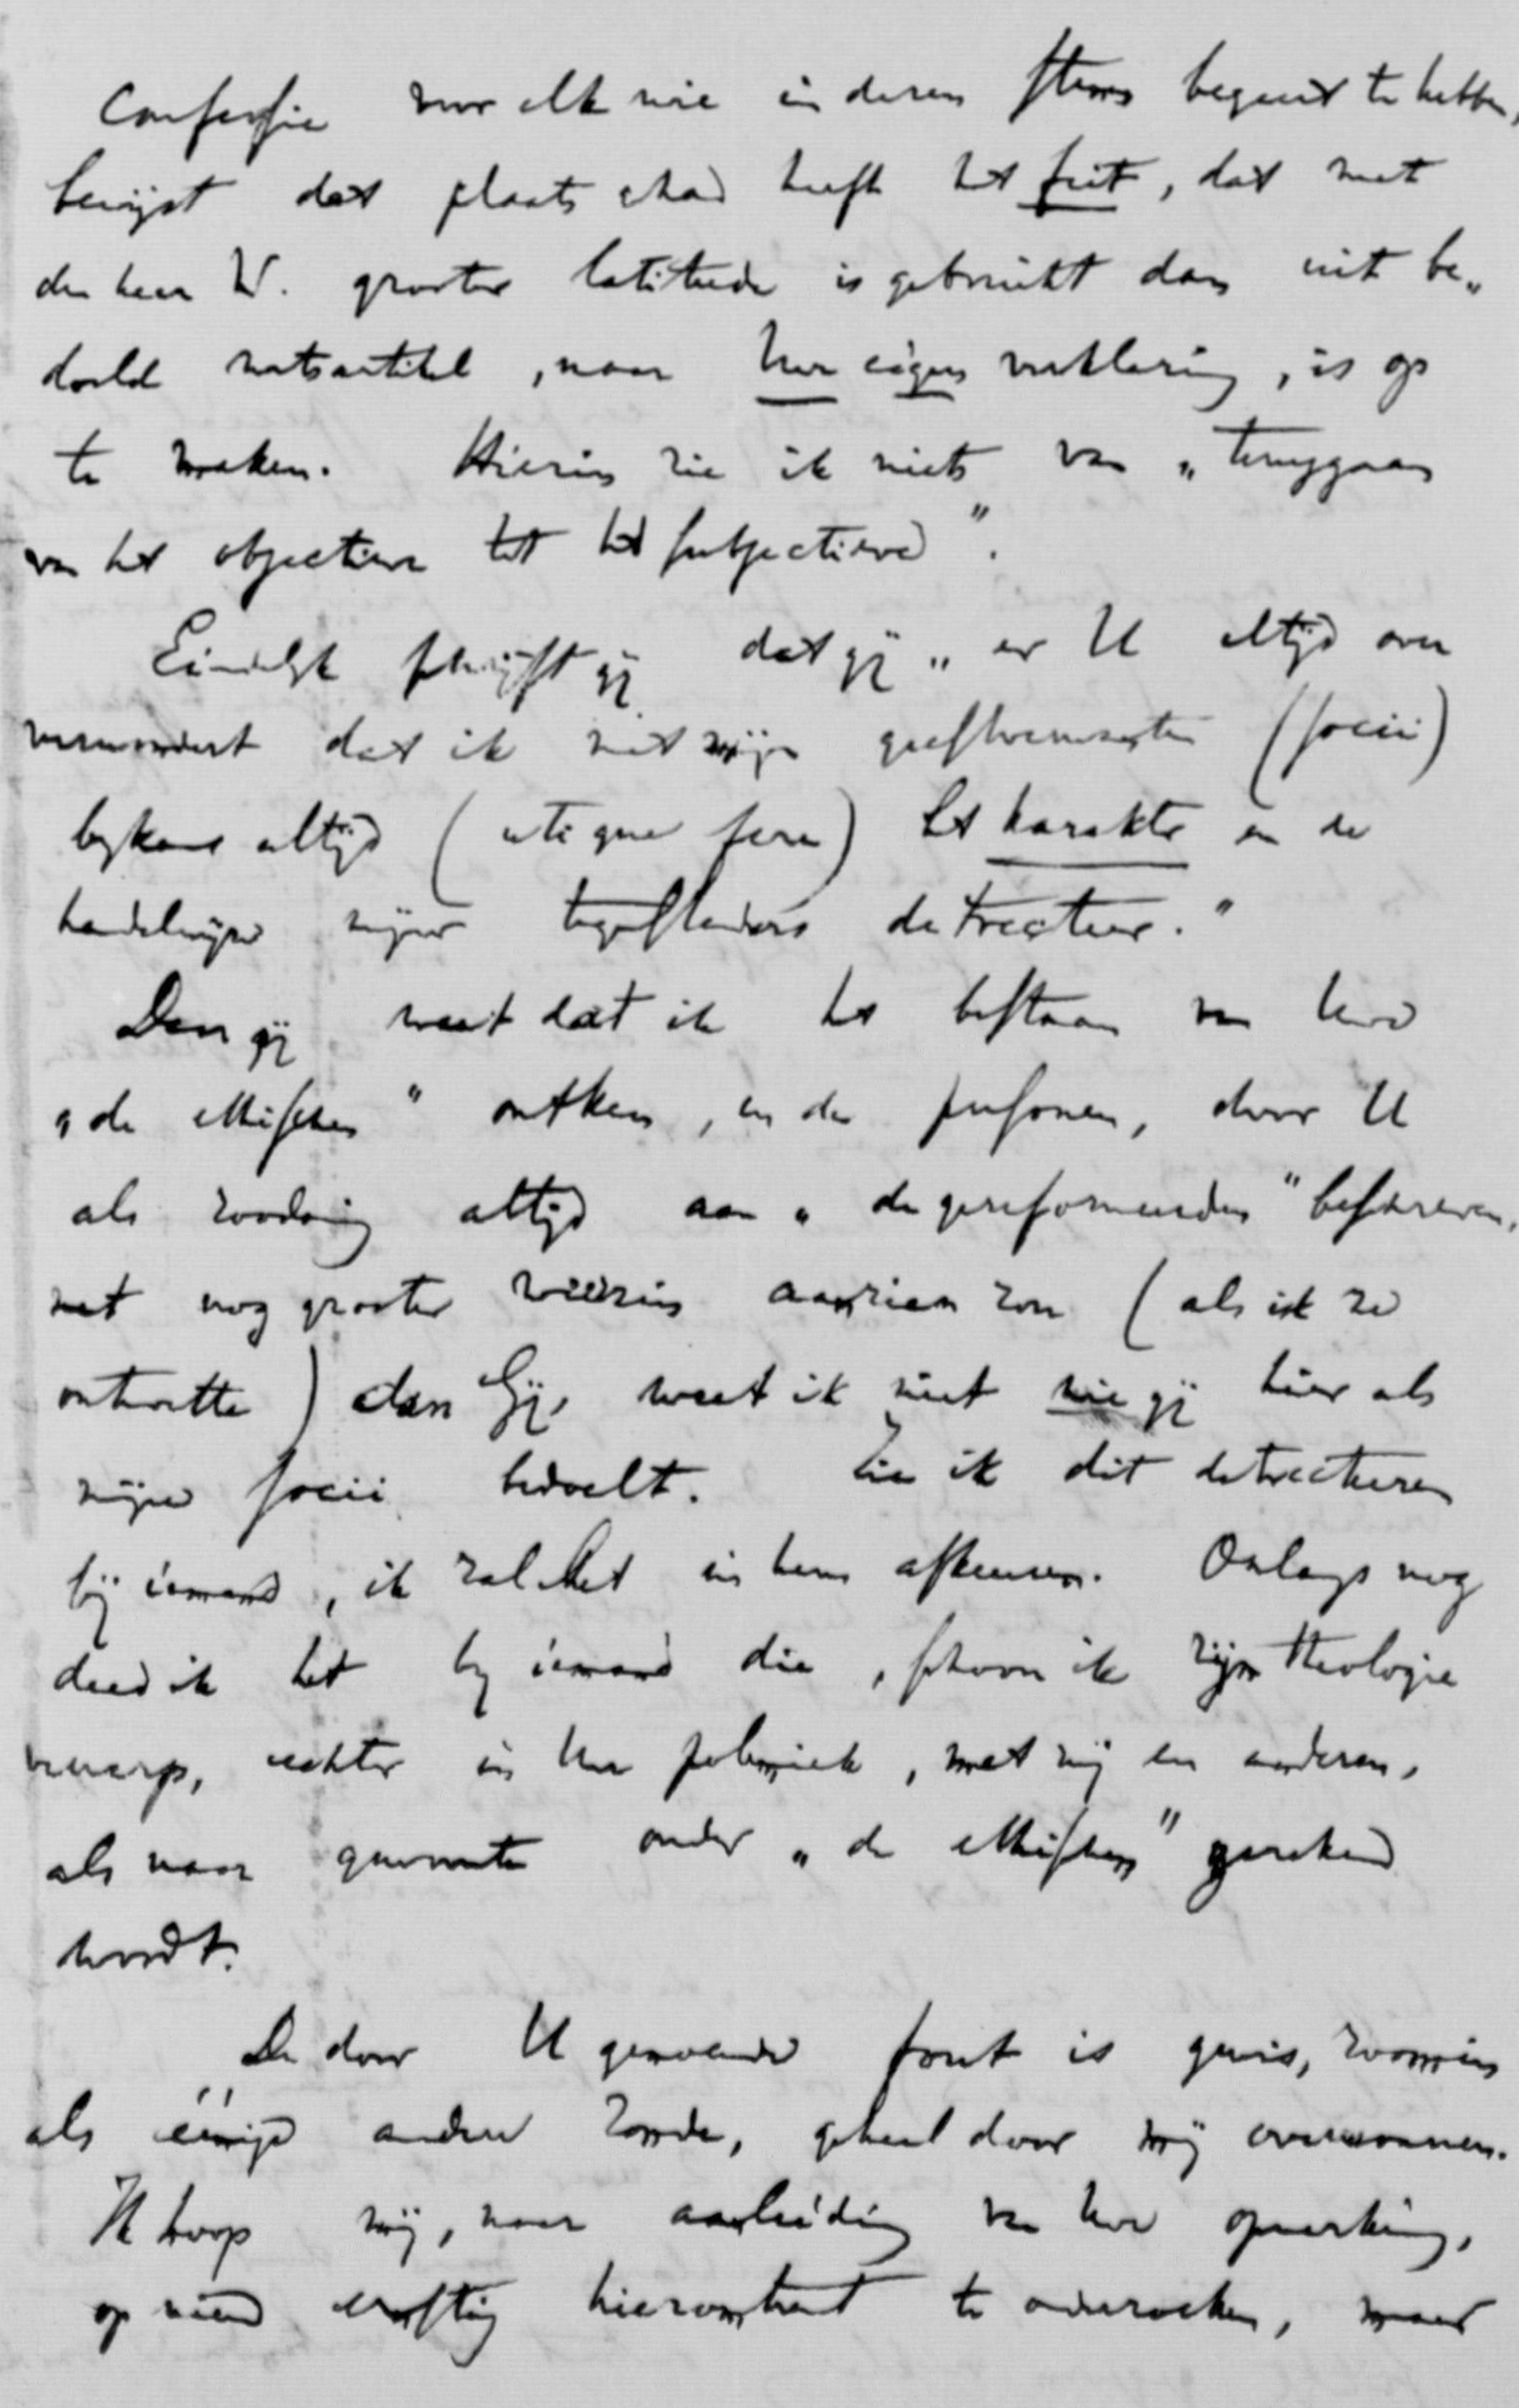 Confessie voor elk wie in dezen stems begeert te hebben,
bewijst dat plaats had heeft het feit, dat met
den heer W. grooter latitude is gebruikt dan uit be„
doeld wetsartikel, naar Uw eigen verklaring, is op
te maken. Hierin zie ik niets van „teruggaan
van het objectieve tot het subjectieve".
Eindelijk schrijft gij dat gij „er U altijd over
verwondert dat ik met mijne geestverwanten (socii)
bykans altijd (utique fere) het karakter en de
handelingen mijner tegenstanders detrecteer."
Daar gij weet dat ik het bestaan van Uwe
„de ethischen" ontken, en de personen, door U
als zoodanig altijd aan „de gereformeerden" beschreven,
met nog grooter weerzin aanzien zou (als ik ze
ontmoette) dan Gij, weet ik niet wie gij hier als
mijne socii bedoelt. Zie ik dit detrecteeren
bij iemand, ik zal het in hem afkeuren. Onlangs nog
deed ik het by iemand die, schoon ik zijn theologie
verwerp, echter in Uw polemiek, met mij en anderen,
als naar gewoonte onder „de ethischen" gerekend
wordt.
De door U genoemde fout is gewis, zoomin
als eénige andere zonde, geheel door mij overwonnen.
Ik hoop mij, naar aanleiding van Uwe opmerking,
op nieuw ernstig hieromtrent te onderzoeken, maar